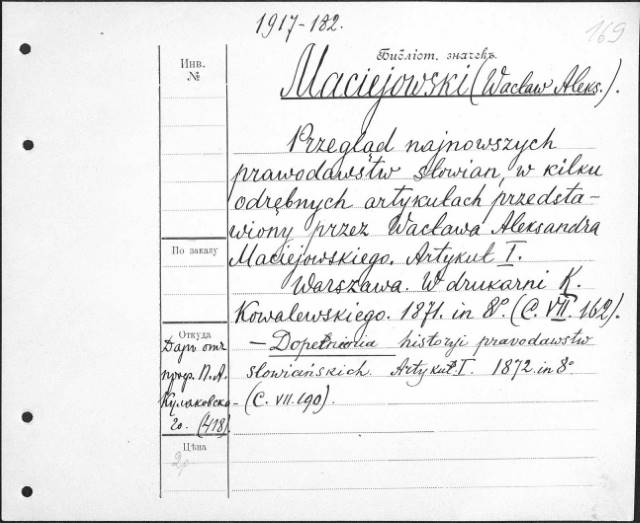 1917-182.
169
Библіот. значекъ.
Инв.
№
Maciejowski (Wacław Aleks.).
Przegląd najnowszych
prawodawstw słowian, w kilku
odrębnych artykułach przedsta-
wiony przez Wacława Aleksandra
Maciejowskiego. Artykuł I.
По заказу
Warszawa. W drukarni K.
Kowalewskiego. 1871. in 8°. (C. VII. 162).
Откуда
— Dopełnienia historyi pravodawstw
słowiańskich. Artykuł I. 1872. in 8°
(C. VII. 190).
Даръ отъ
проф. П. А.
Кулаковска-
го. (418)
Цѣна
2р